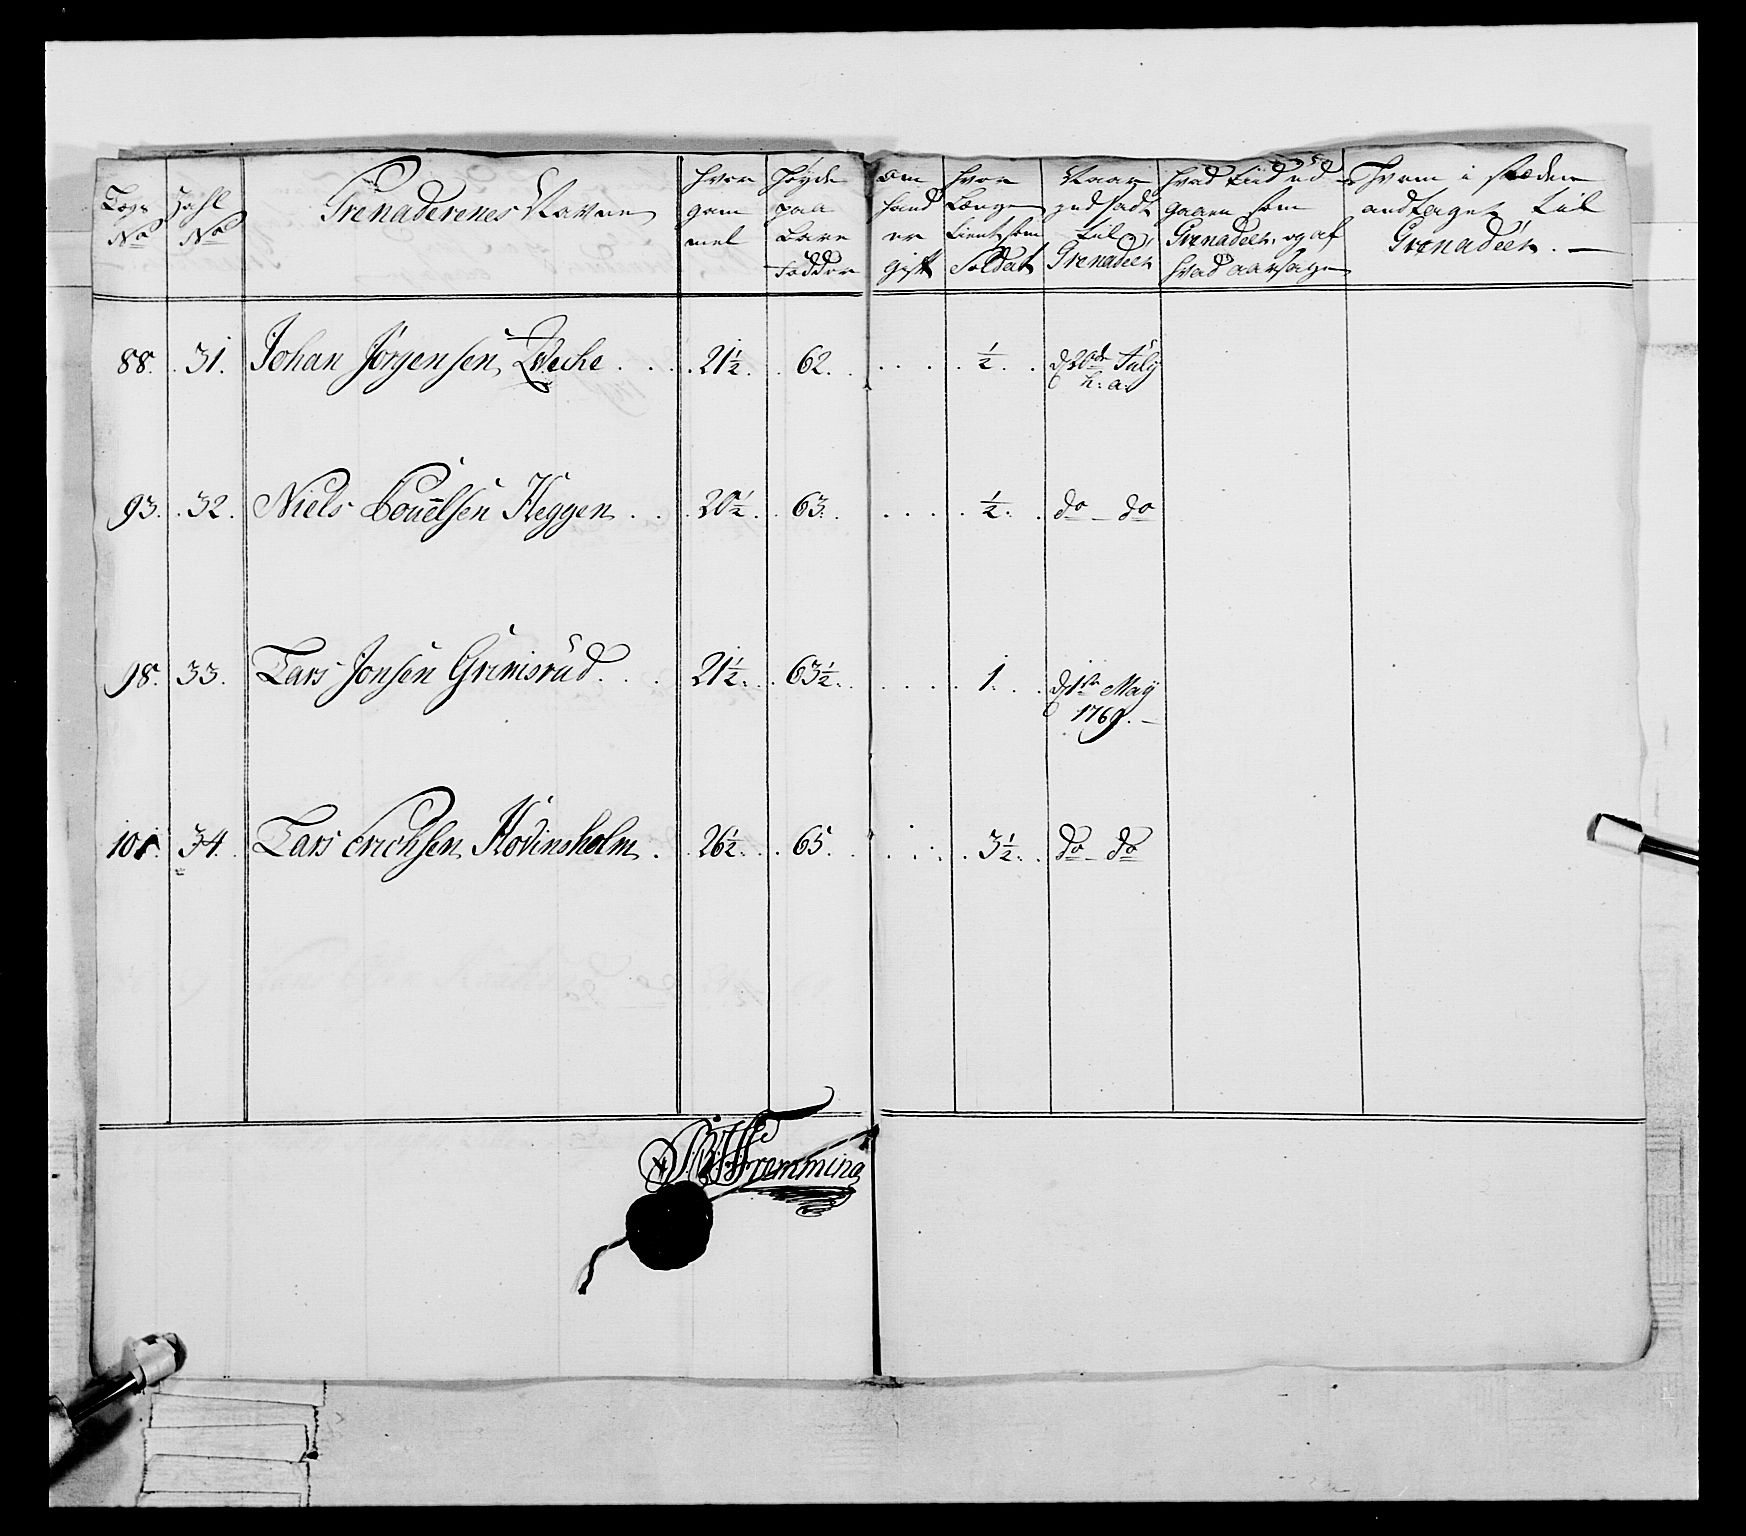 Lægs No
Zahl No
Grenaderernes Navne
hvor gam mel
Høyde paa bare Fødder
om hand er gift
hvor Længe tient som Soldat
Naar indsadt til Grenadeer
hvad tiid ud gaaen som Grenadeer og af hvad aarsage
Hvem i stæden andtaget til Grenadeer. —
88. 31. Johan Jörgensen Weche . . . 21½. . 62. . . . . . ½. . d 20de July h: a:
93. 32. Niels Pouelsen Heggen . . 20½. . 63. . . . . . ½. . do — do
98. 33. Lars Jonsen Grimsrud . . . 21½. . 63½. . . . . . 1. . . d 1ste May 1769. —
101. 34. Lars Erichsen Hovinsholm . . 26½. . . 65. . . . . . 3½. . do — do
Fremming